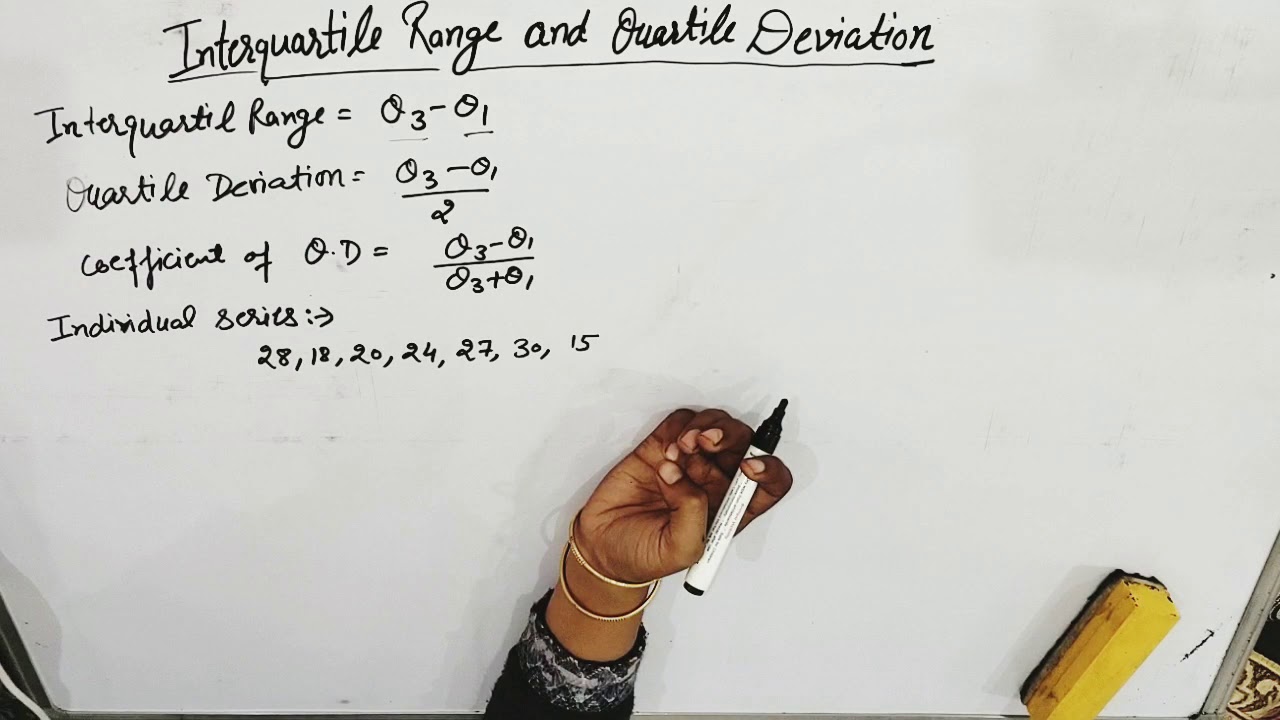 Interquartile Range and Quartile Deviation
Interquartil Range = Q3 - Q1
Quartile Deviation = Q3 - Q1 / 2
Coefficient of Q.D = Q3 - Q1 / Q3 + Q1
Individual series :->
28, 18, 20, 24, 27, 30, 15